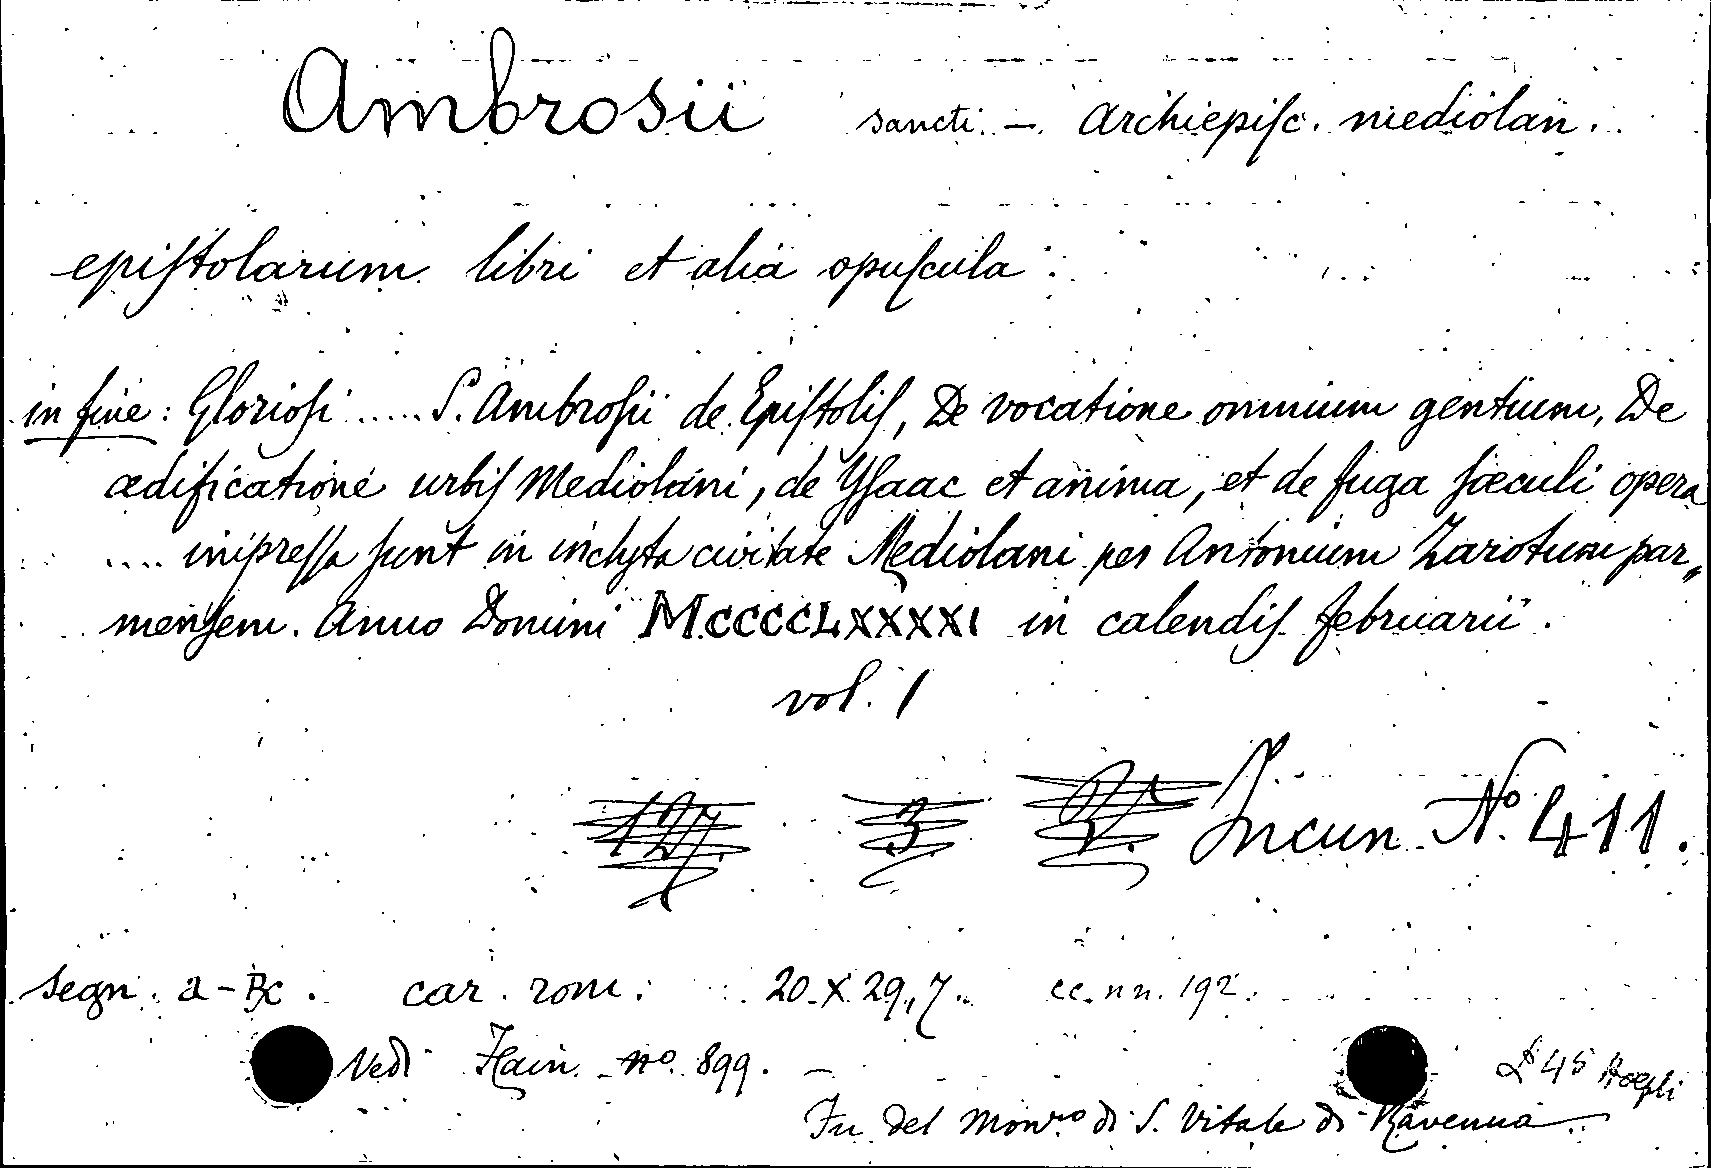 Ambrosii sancti – Archiepisc. mediolan.
epistolarum libri et alia opuscula.
in fine: Gloriosi ..... S. Ambrosii de Epistolis, De vocatione omnium gentium, De
ædificatione urbis Mediolani, de Ysaac et anima, et de fuga sæculi opera
.... impressa sunt in inclyta civitate Mediolani per Antonium Zarotum par„
mensem. Anno Domini MCCCCLXXXXI in calendis februarii.
vol. 1
127. 3. Incun. Nº. 411.
segn. a - Bc. car. rom. 20 X 29,7. cc. nn. 192.
Vedi Hain nº. 899. –
£ 45 Hoepli
Fu del Monro di S. Vitale di Ravenna